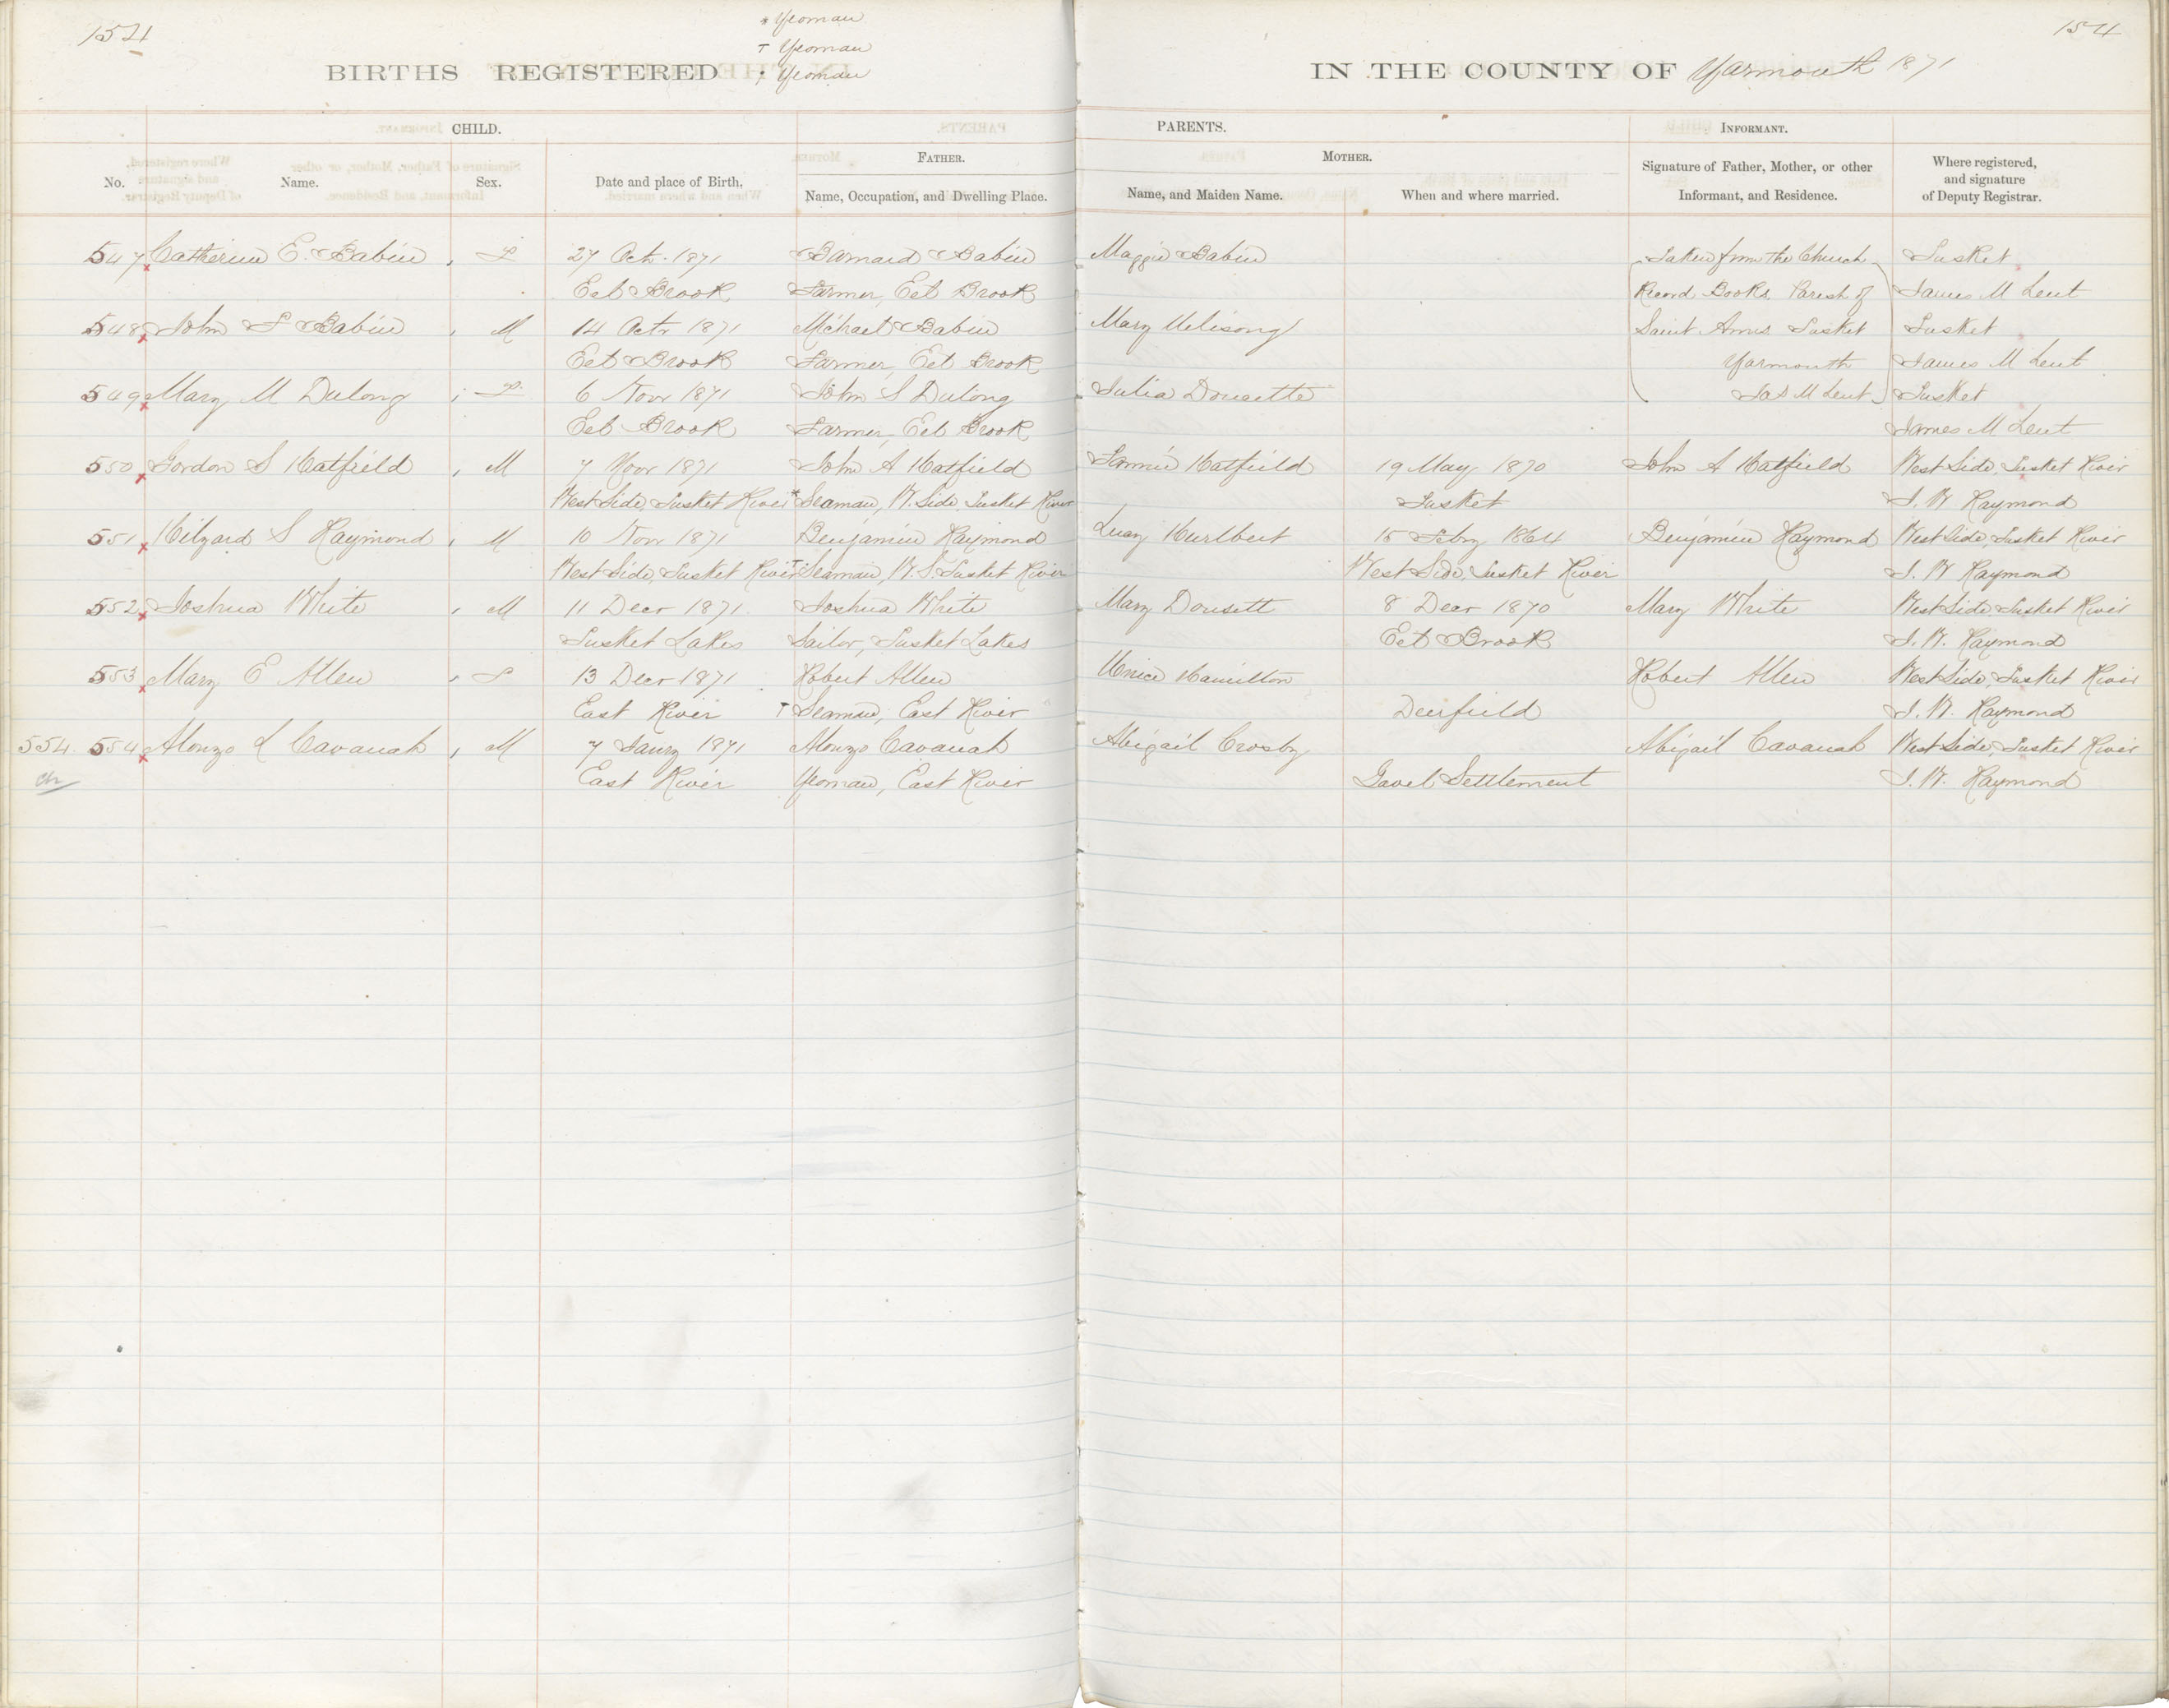 154
154
* Yeoman
† Yeoman
‡ Yeoman
BIRTHS REGISTERED IN THE COUNTY OF Yarmouth 1871
CHILD. PARENTS. INFORMANT.
FATHER. MOTHER.
No. Name. Sex. Date and place of Birth. Name, Occupation, and Dwelling Place. Name, and Maiden Name. When and where married. Signature of Father, Mother, or other Informant, and Residence. Where registered, and signature of Deputy Registrar.
547 Catherine E. Babin F 27 Octr. 1871 Barnard Babin Maggie Babin Taken from the Church Tusket
Eel Brook Farmer, Eel Brook Record Books Parish of James M Lent
548 John S Babin M 14 Octr 1871 Michael Babin Mary Saint Anns Tusket Tusket
Eel Brook Farmer, Eel Brook Yarmouth James M Lent
549 Mary M Dulong F 6 Novr 1871 John S Dulong Julia Doucette Jas M Lent Tusket
Eel Brook Farmer, Eel Brook James M Lent
550 Gordon S Hatfield M 7 Novr 1871 John A Hatfield Fannie Hatfield 19 May 1870 John A Hatfield West Side, Tusket River
West Side, Tusket River * Seaman, W. Side, Tusket River Tusket J. W Raymond
551 Hilyard S Raymond M 10 Novr 1871 Benjamin Raymond Lucy Hurlbert 15 Feby 1864 Benjamin Raymond West Side, Tusket River
West Side, Tusket River † Seaman, W. S. Tusket River West Side, Tusket River J. W Raymond
552 Joshua White M 11 Decr 1871 Joshua White Mary Dousett 8 Decr 1870 Mary White West Side Tusket River
Tusket Lakes Sailor, Tusket Lakes Eel Brook J. W. Raymond
553 Mary E Allen F 13 Decr 1871 Robert Allen Unice Hamilton Robert Allen West Side, Tusket River
East River † Seaman, East River Deerfield J. W. Raymond
554 554 Alonzo L Cavanah M 7 Jany 1871 Alonzo Cavanah Abigail Crosby Abigail Cavanah West Side, Tusket River
East River Yeoman, East River Gavel Settlement J. W. Raymond